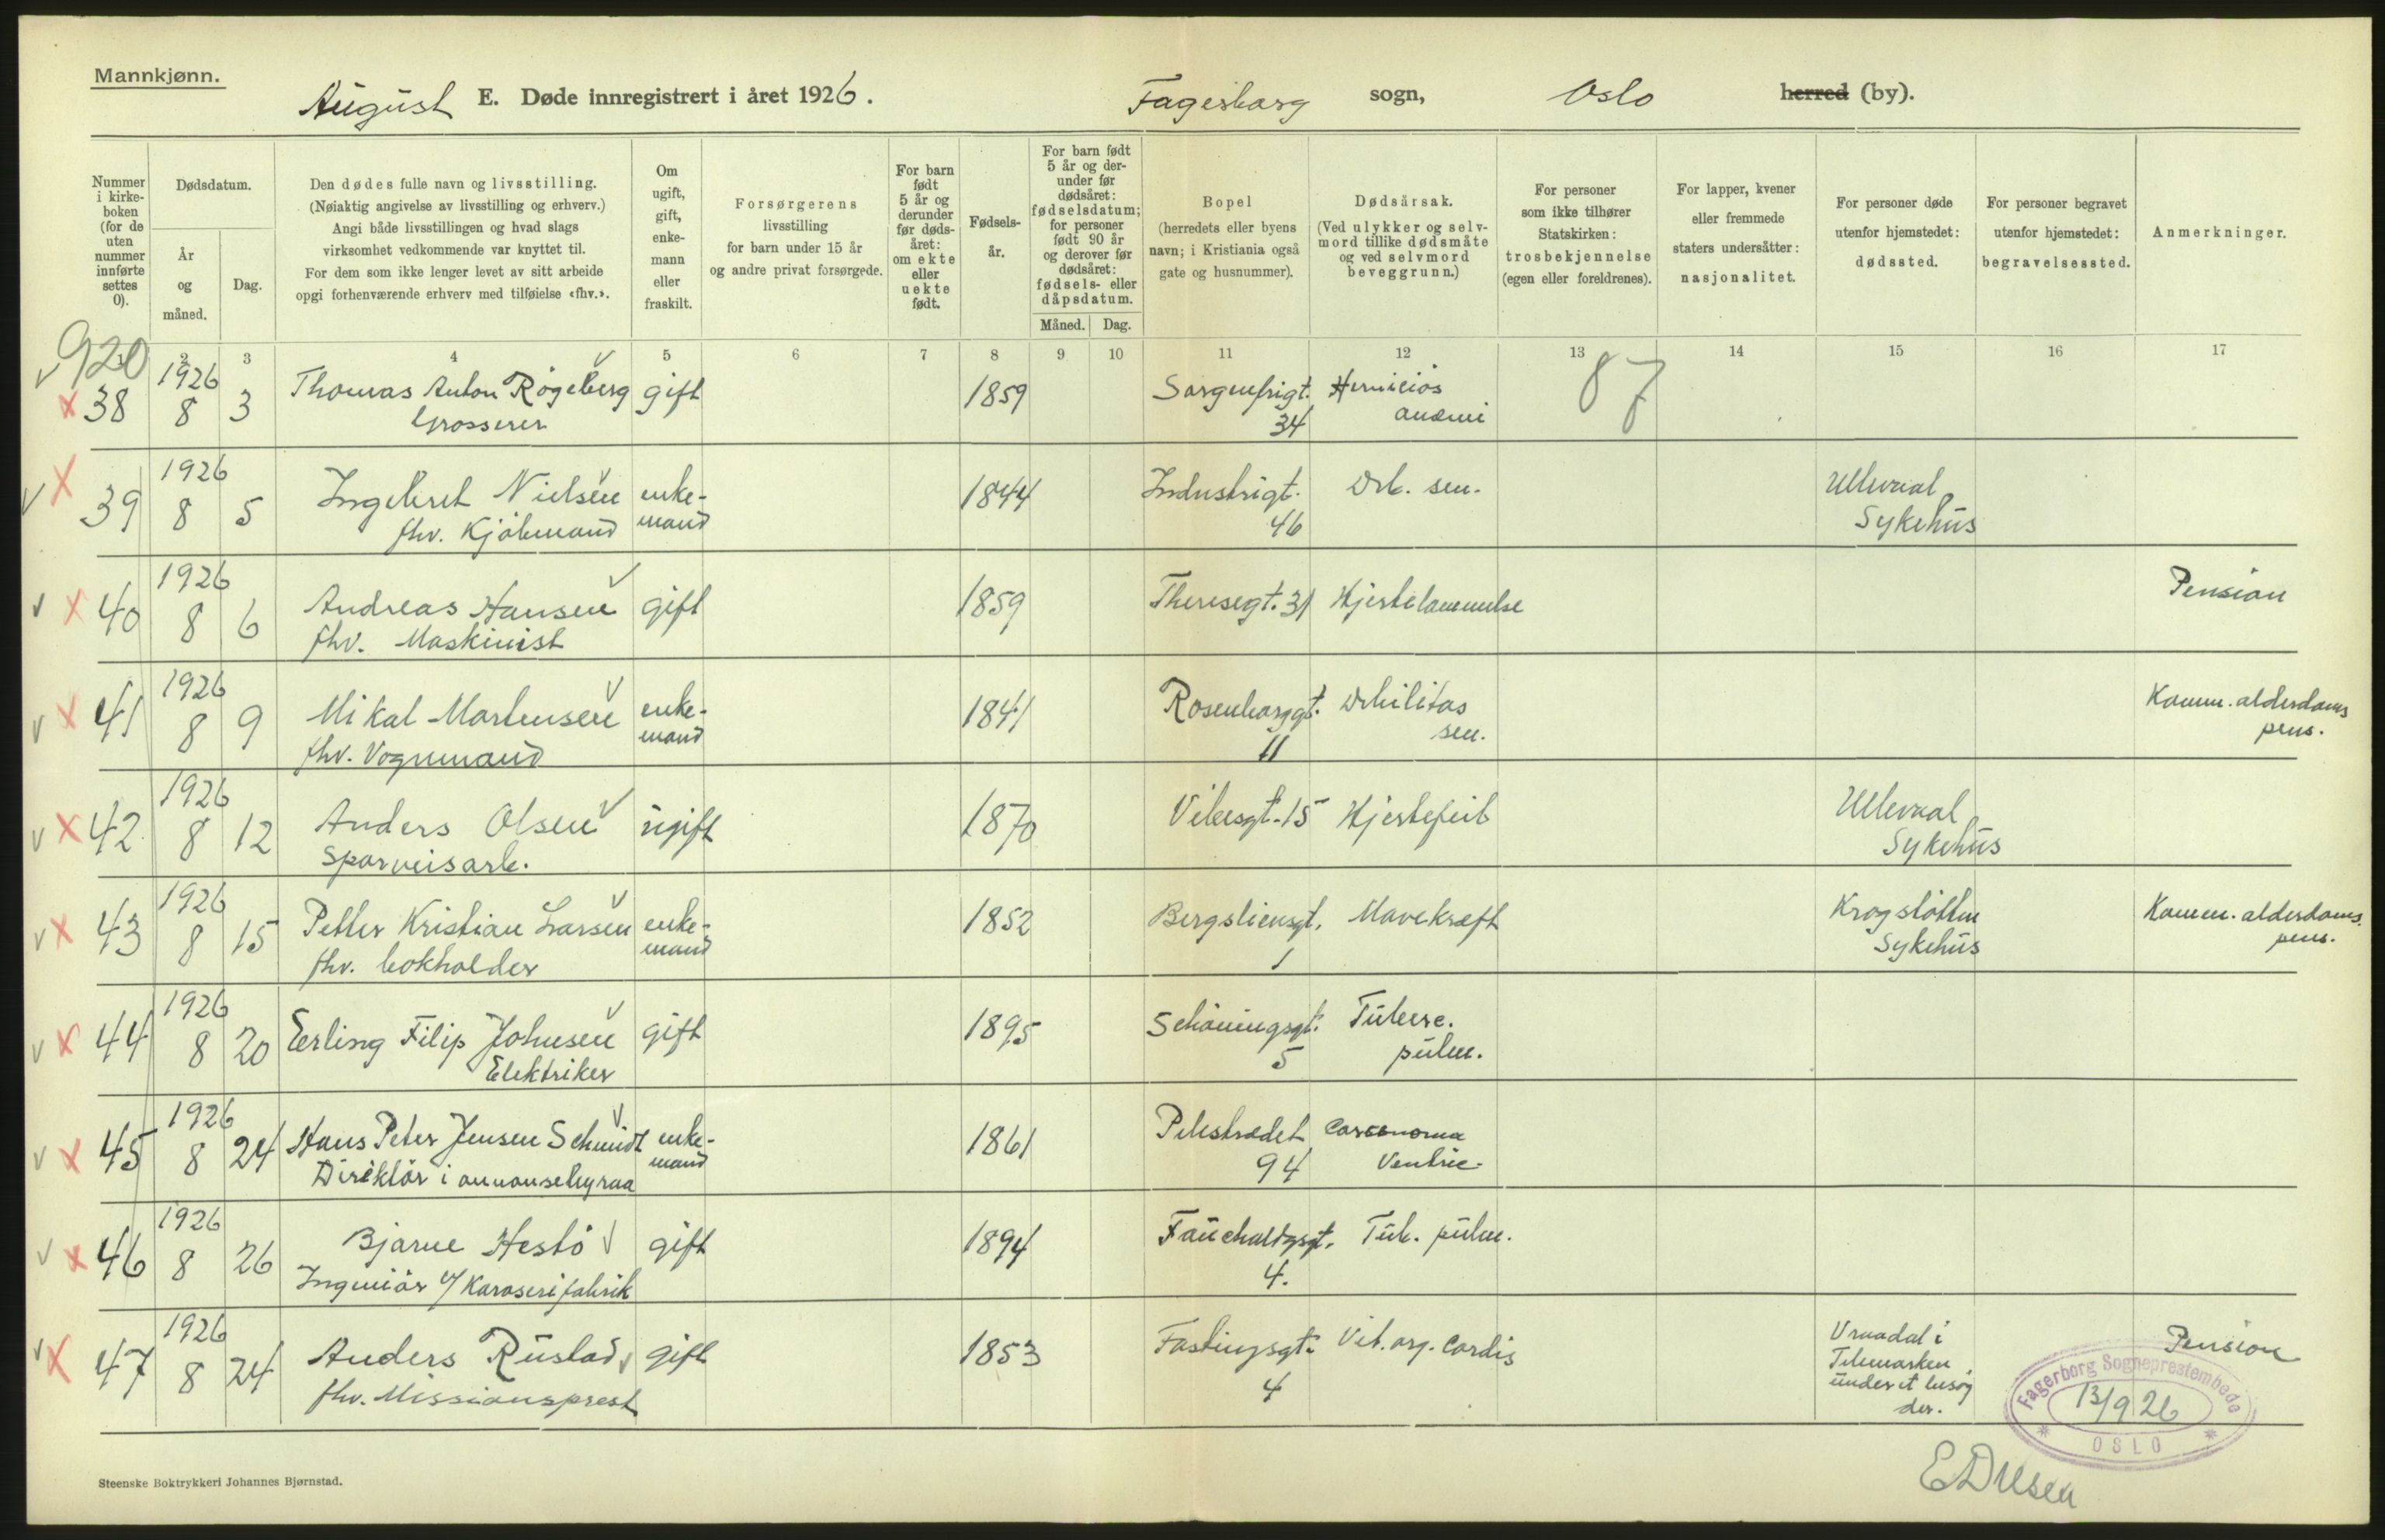 Mannkjønn.
August E. Døde innregistrert i året 1926. Fagerborg sogn, Oslo herred (by).
Nummer i kirke-boken (for de uten nummer innførte settes 0).
Dødsdatum.
År og måned.
Dag.
Den dødes fulle navn og livsstilling.
(Nøiaktig angivelse av livsstilling og erhverv.)
Angi både livsstillingen og hvad slags
virksomhet vedkommende var knyttet til.
For dem som ikke lenger levet av sitt arbeide
opgi forhenværende erhverv med tilføielse «fhv.».
Om ugift, gift, enke-mann eller fraskilt.
Forsørgerens
livsstilling
for barn under 15 år
og andre privat forsørgede.
For barn født 5 år og derunder før døds-året: om ekte eller uekte født.
Fødsels-år.
For barn født 5 år og der-under før dødsåret: fødselsdatum; for personer født 90 år og derover før dødsåret: fødsels- eller dåpsdatum.
Måned. Dag.
Bopel
(herredets eller byens
navn; i Kristiania også
gate og husnummer).
Dødsårsak.
(Ved ulykker og selv-
mord tillike dødsmåte
og ved selvmord
beveggrunn.)
For personer
som ikke tilhører
Statskirken:
trosbekjennelse
(egen eller foreldrenes).
For lapper, kvener
eller fremmede
staters undersåtter:
nasjonalitet.
For personer døde
utenfor hjemstedet:
dødssted.
For personer begravet
utenfor hjemstedet:
begravelsessted.
Anmerkninger.
920
1 2 3 4 5 6 7 8 9 10 11 12 13 14 15 16 17
1926
38 8 3 Thomas Anton Rogeberg gift 1859 Sorgenfrigt. Perniciøs 87
Grosserer 34 anæmi
1926
39 8 5 Ingebret Nielsen enke- 1844 Industrigt. Deb. sen. Ullevaal
fhv. Kjøbmand mand 46 Sykehus
1926
40 8 6 Andreas Hansen gift 1859 Theresegt. 31 Hjertelammelse Pension
fhv. Maskinist
1926
41 8 9 Mikal Martensen enke- 1841 Rosenborggt. Debilitas Komm. alderdoms
fhv. Vognmand mand 11 sen. pens.
1926
42 8 12 Anders Olsen ugift 1870 Vibesgt. 15 Hjertefeil Ullevaal
Sporveisarb. Sykehus
1926
43 8 15 Petter Kristian Larsen enke- 1852 Bergsliensgt. Mavekræft Krogstøtten Komm. alderdoms.
fhv. bokholder mand 1 Sykehus pens.
1926
44 8 20 Erling Filip Johnsen gift 1895 Schøningsgt. Tuberc.
Elektriker 5 pulm.
1926
45 8 24 Hans Peter Jensen Schmidt enke- 1861 Pilestrædet Carcenoma
Direktør i annonsebyraa mand 94 Ventric.
1926
46 8 26 Bjarne Hestø gift 1894 Fauchaldsgt. Tub. pulm.
Ingeniør v/ Karoserifabrik 4.
1926
47 8 24 Anders Rustad gift 1853 Fastingsgt. Vit. org. cordis Vraadal i Telemarken under et besøg der. Pension
fhv. Missionsprest 4
Fagerborg Sogneprestembede
13/9 26
OSLO
Steenske Boktrykkeri Johannes Bjørnstad.